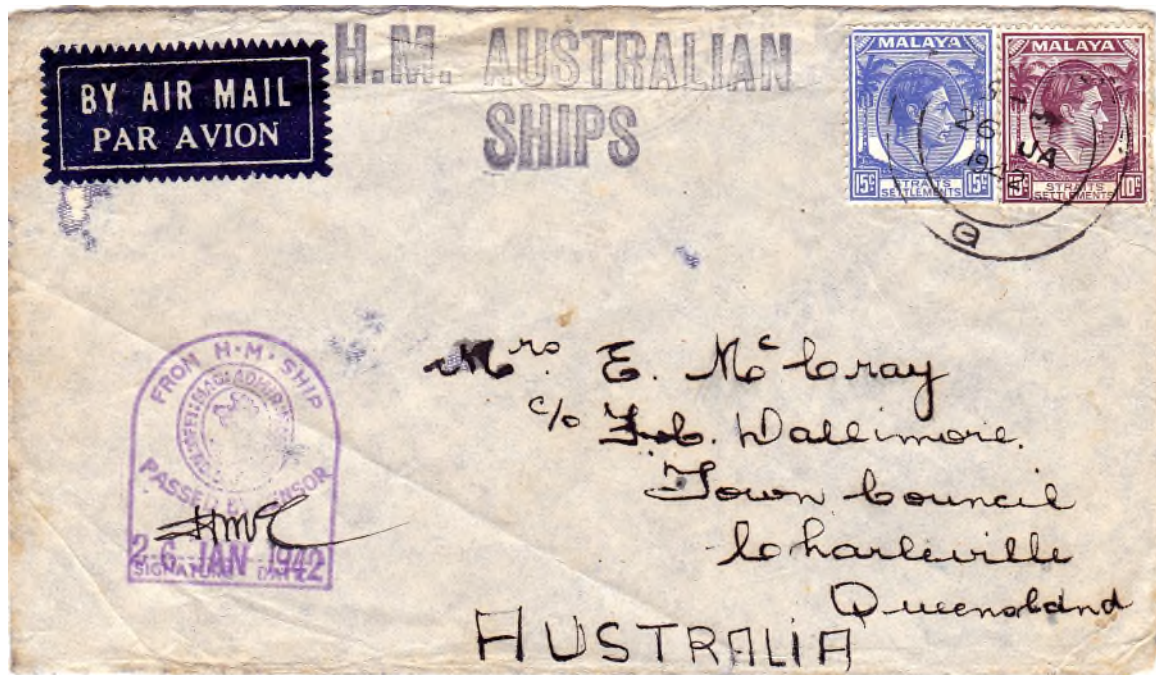 BY AIR MAIL
PAR AVION
H.M. AUSTRALIAN
SHIPS
MALAYA
15c STRAITS SETTLEMENTS 15c
MALAYA
STRAITS SETTLEMENTS 10c
26 JA
1942
FROM H·M·SHIP
PASSED BY CENSOR
26 JAN 1942
SIGNATURE DATE
Mrs. E. McCray
c/o F.C. Dallimore.
Town Council
Charleville
Queensland
AUSTRALIA